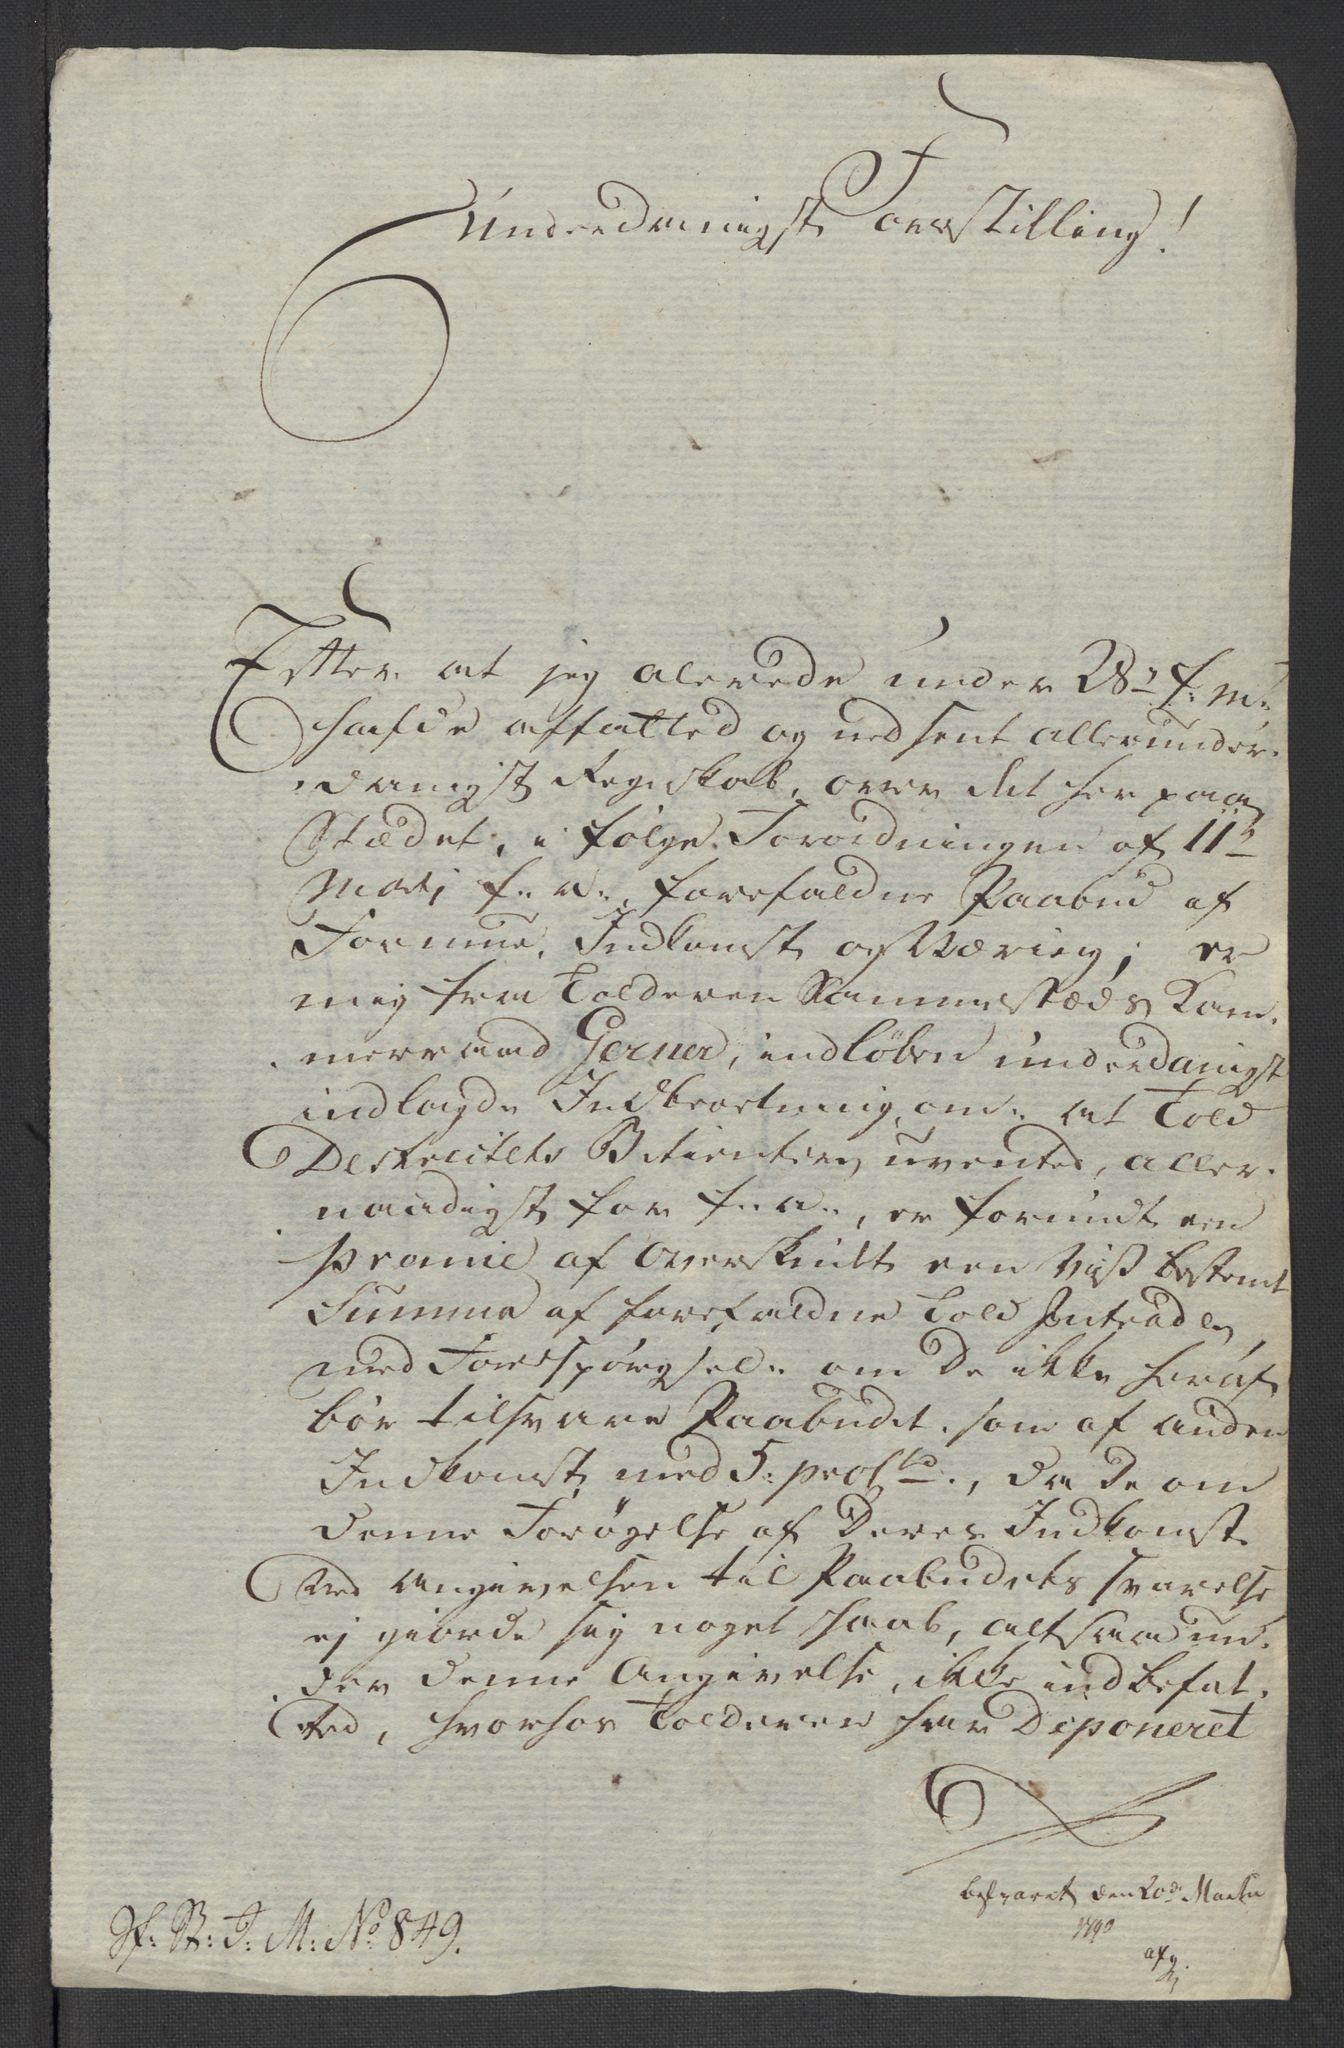 Underdanigst Forestilling!
Efter at jeg alerede under 28de f: m:
hafde affatted og nedsent allerunder-
danigst Regnskab, over det her paa
Stædet, i følge Forordningen af 11te
Martj f: a:, forefaldne Paabud af
Formue, Indkomst og Næring; er
mig fra Tolderen Sammestæds Kam-
merraad Gerner, indløben underdanigst
indlagde Indberetning, om: at Told
Destricktets Betientere uvented, aller-
naadigst for f: a:, er forundt een
Præmie af Overskudt een viss bestemt
Summa af forefaldne Told Intrader,
med Forespørgsel: om De ikke heraf
bør tilsvare Paabudet, som af anden
Indkomst med 5: proCto., da De om
denne Forøgelse af Deres Indkomst
ved Angivelsen til Paabudets svarelse
ej giorde sig noget Haab, altsaa un-
der denne Angivelse, ikke indbefat-
ted, hvorhos Tolderen har Deponeret
besvaret den 20de Martii
1790
Sf: St: T: M: No 849.